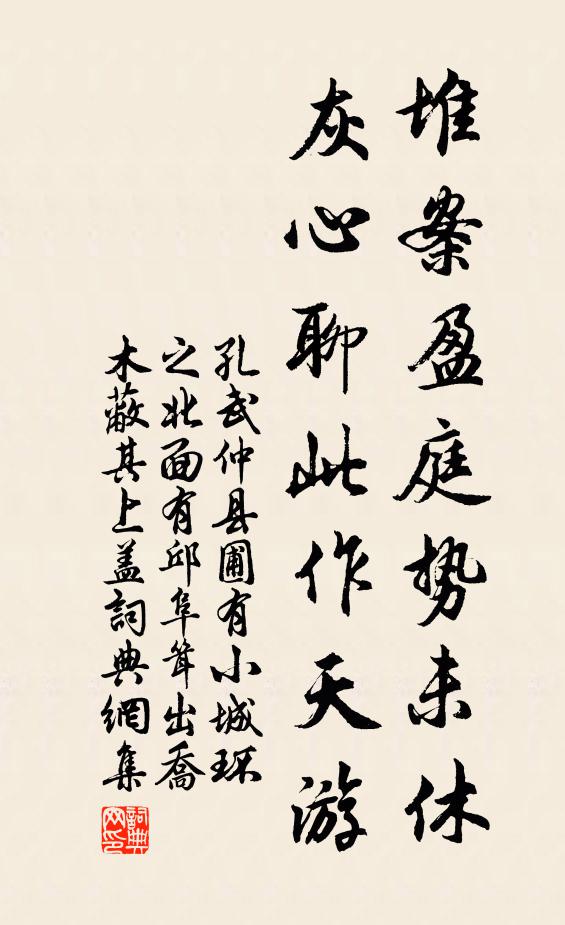 堆案盈庭势未休
灰心聊此作天游
孔武仲县圃有小城环
之北面有邱阜耸出乔
木蔽其上盖詞典網集
詞典
网印